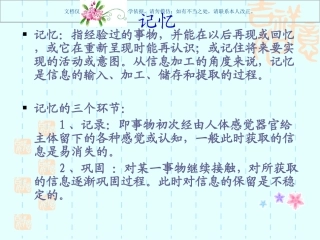 文档仅
学依据；请尽量信；如有不当之处，请联系本人改正。
记忆
记忆：指经验过的事物，并能在以后再现或回忆
，或它在重新呈现时能再认识；或记住将来要实
现的活动或意图。从信息加工的角度来说，记忆
是信息的输入、加工、储存和提取的过程。
记忆的三个环节：
1、记录：即事物初次经由人体感觉器官给
主体留下的各种感觉或认知，一般此时获取的信
息是易消失的。
2、巩固 ：对某一事物继续接触，对所获取
的信息逐渐巩固过程。此时对信息的保留是不稳
定的。